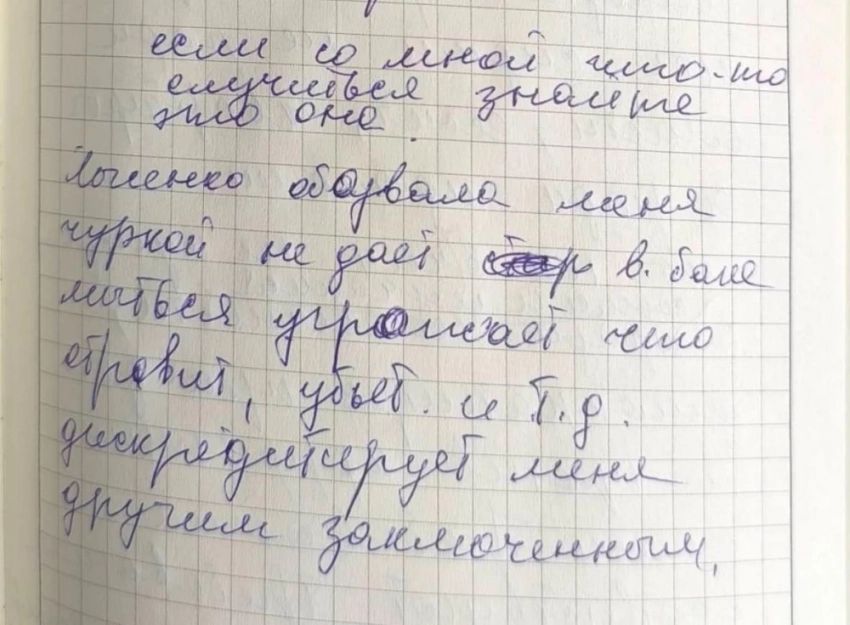 если со мной что-то
случиться знаите
это она.
обозвала меня
чуркой не дает в. бане
мыться угрожает что
отровит, убьет. и т.д.
дискредитирует меня
другим заключенным,